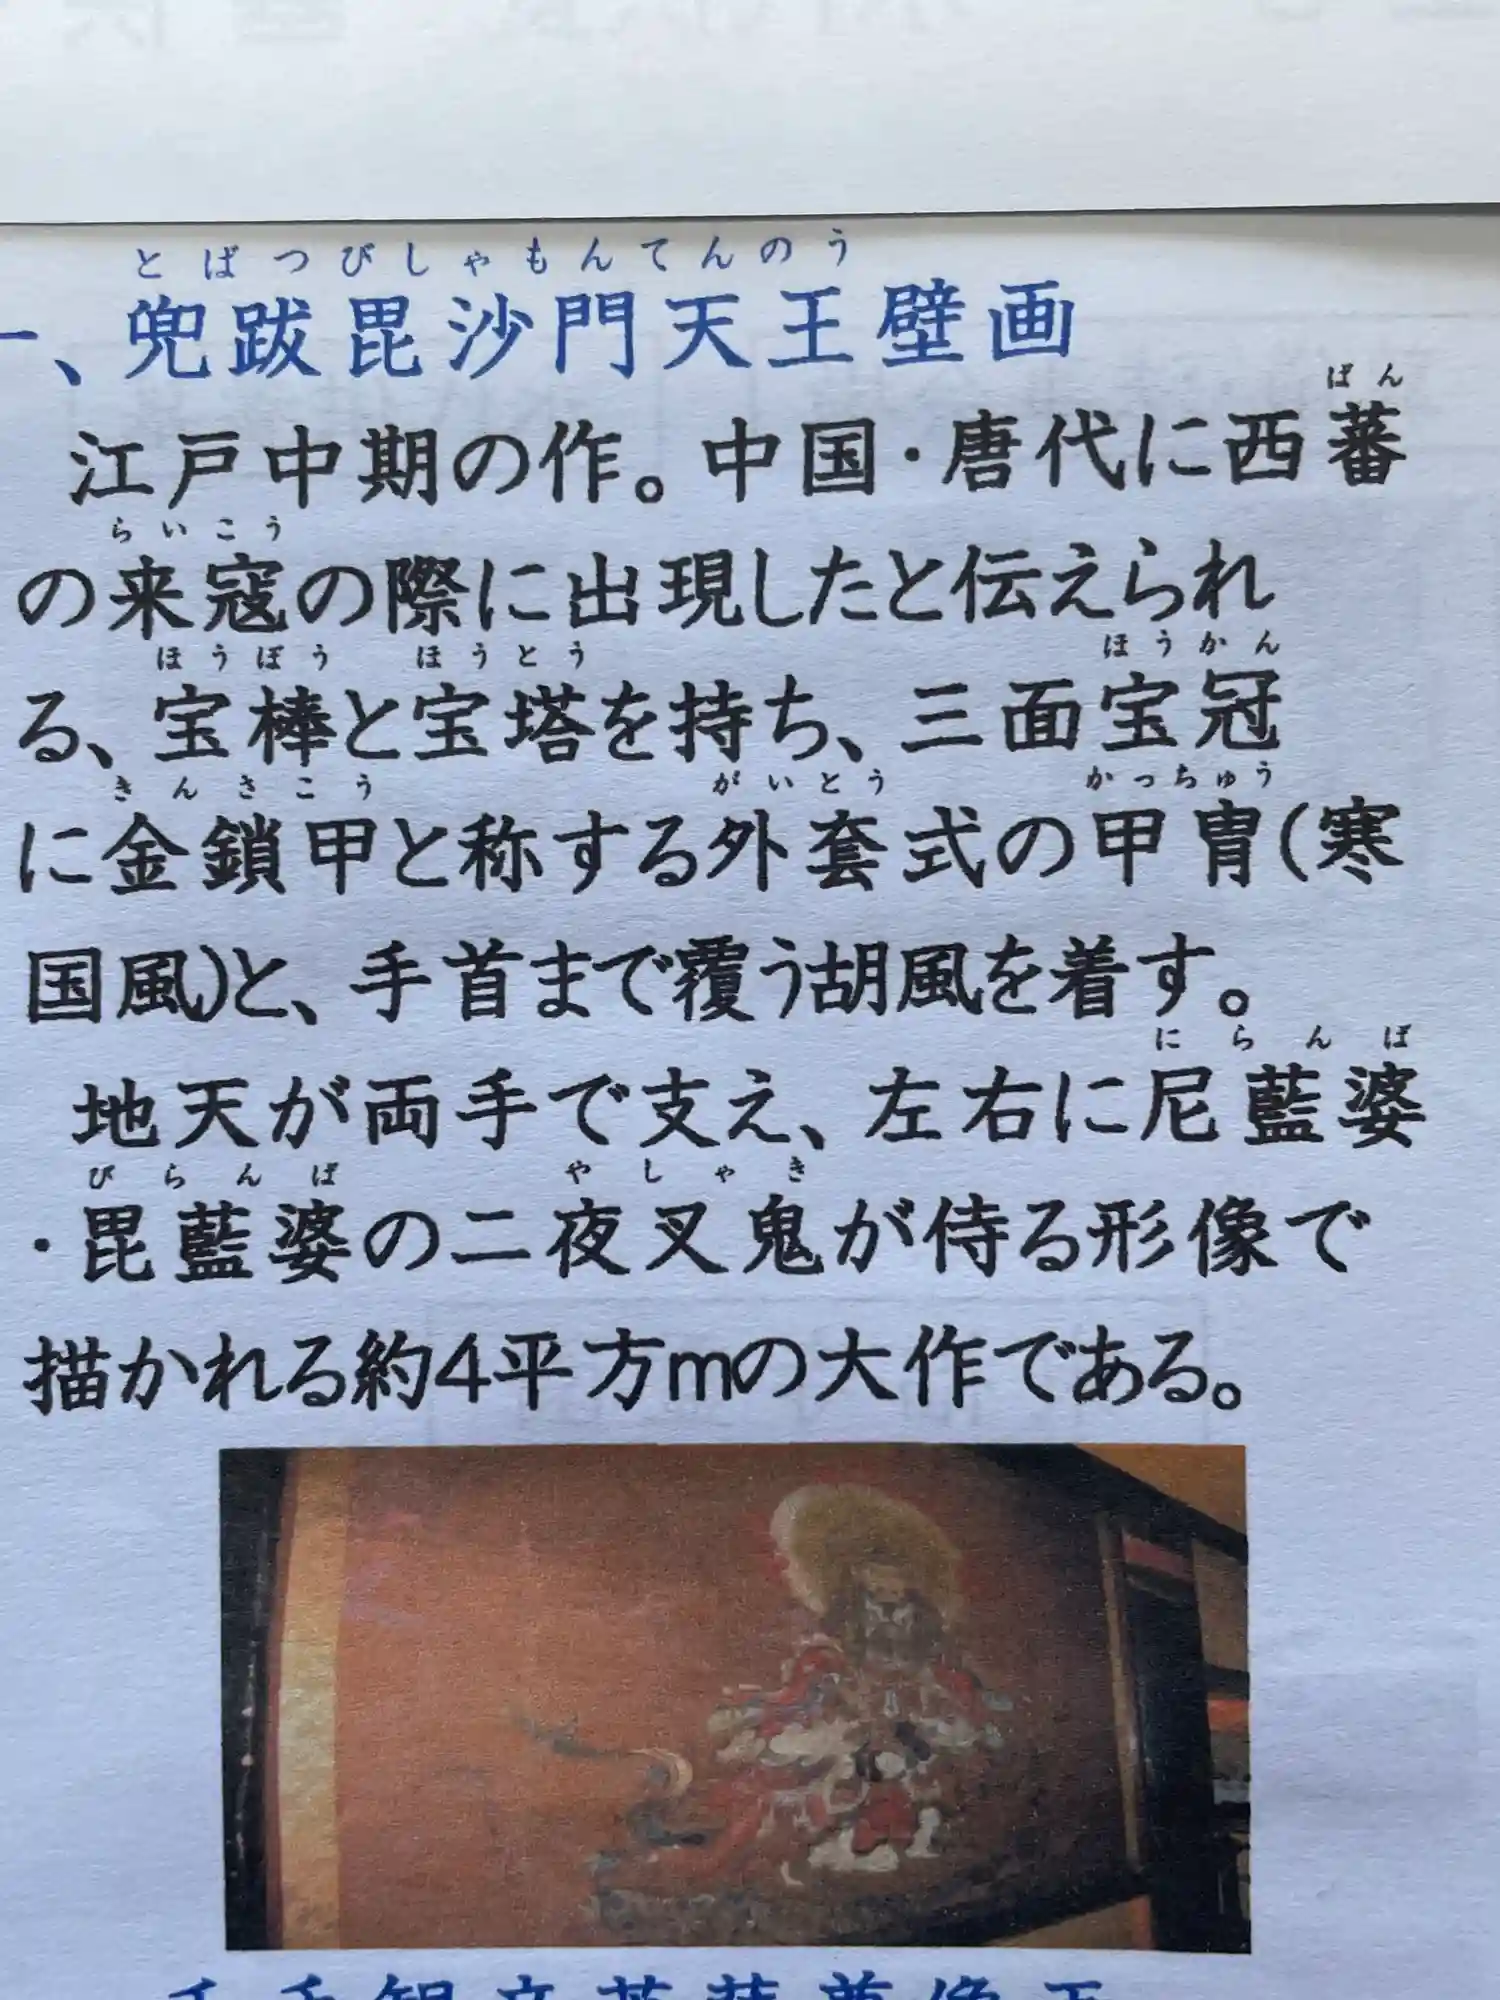 とばつびしゃもんてんのう
一、兜跋毘沙門天王壁画
ばん
江戸中期の作。中国・唐代に西蕃
らいこう
の来寇の際に出現したと伝えられ
ほうぼう ほうとう ほうかん
る、宝棒と宝塔を持ち、三面宝冠
きんさこう がいとう かっちゅう
に金鎖甲と称する外套式の甲冑(寒
国風)と、手首まで覆う胡風を着す。
にらんば
地天が両手で支え、左右に尼藍婆
びらんば やしゃき
・毘藍婆の二夜叉鬼が侍る形像で
描かれる約4平方mの大作である。